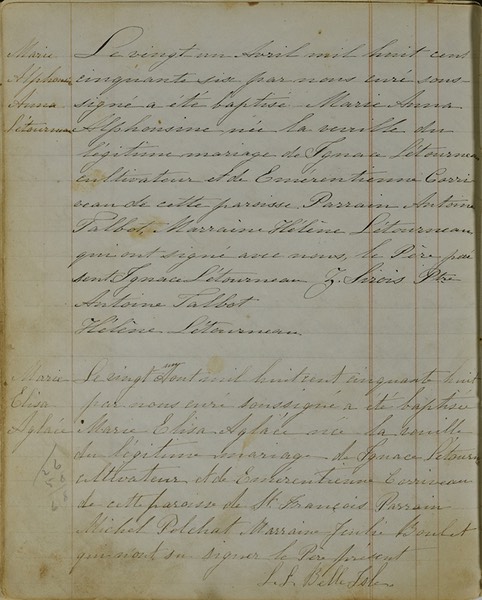 Marie
Alphons
Anna
Létourneau
Le vingt un Avril mil huit cent
cinquante six par nous curé sous-
signé a été baptisé Marie Anna
Alphonsine née la veuille du
légitime mariage de Ignace Létourneau
cultivateur et de Emérentienne Corri
veau de cette paroisse Parrain Antoine
Talbot, Marraine Hélène Létourneau
qui ont signé avec nous, le Père pré
sent Ignace Létourneau Z. Sirois Ptre
Antoine Talbot
Hélène Létourneau
Marie
Elisa
Aglaée
Le vingt un Aout mil huit cent cinquante huit
par nous curé soussigné a été baptisée
Marie Elisa Aglaée née la veuille
du légitime mariage de Ignace Létourn
cultivateur et de Emérentienne Corriveau
de cette paroisse de St François Parrain
Michel Polchat Marraine Julie Boulet
qui n'ont su signer le Père présent
Belle Isle